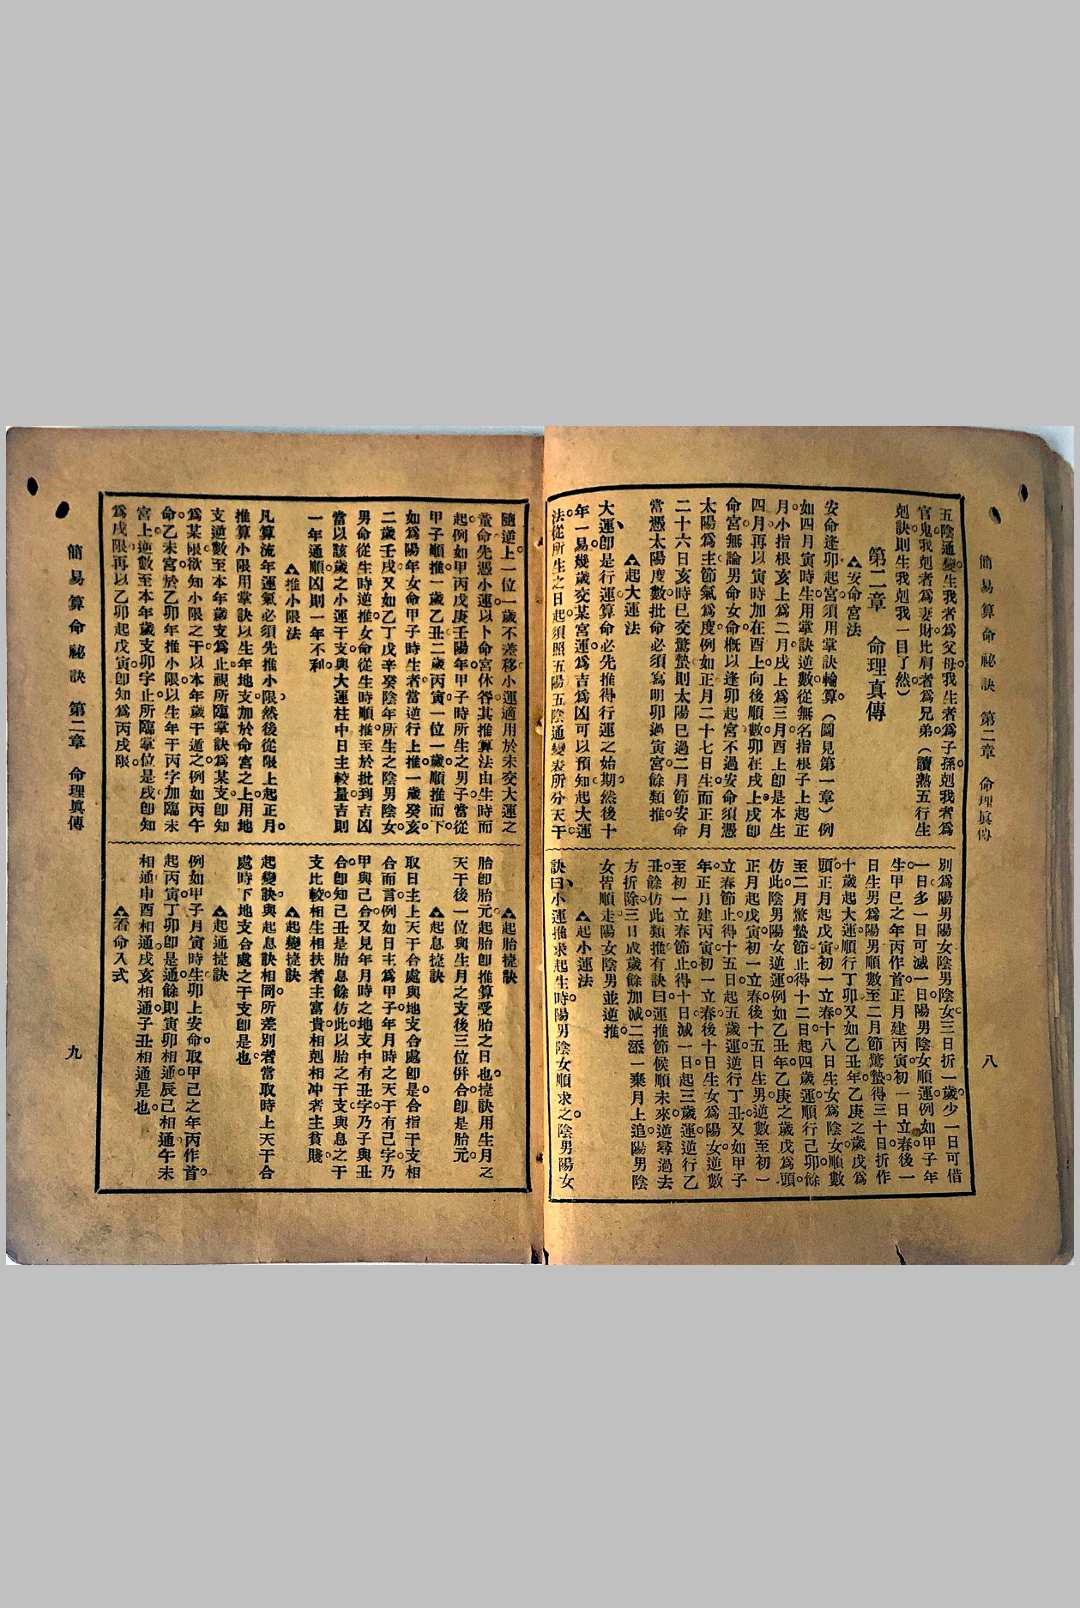 簡易算命祕訣　第二章　命理眞傳
八
五陰通變生我者爲父母我生者爲子孫剋我者爲
官鬼我剋者爲妻財比肩者爲兄弟（讀熟五行生
剋訣則生我剋我一目了然）
第二章　命理真傳
▲安命宮法
安命逢卯起宮須用掌訣輪算（圖見第一章）例
如四月寅時生用掌訣逆數從無名指根子上起正
月小指根亥上爲二月戌上爲三月酉上卽是本生
四月再以寅時加在酉上向後順數卯在戌上戌卽
命宮無論男命女命槪以逢卯起宮不過安命須憑
太陽爲主節氣爲度例如正月二十七日生而正月
二十六日亥時已交驚蟄則太陽已過二月節安命
當憑太陽度數批命必須寫明卯過寅宮餘類推
▲起大運法
大運卽是行運算命必先推得行運之始期然後十
年一易幾歲交某宮運爲吉爲凶可以預知起大運
法從所生之日起須照五陽五陰通變表所分天干
別爲陽男陽女陰男陰女三日折一歲少一日可借
一日多一日可減一日陽男陰女順運例如甲子年
生甲己之年丙作首正月建丙寅初一日立春後一
日生男爲陽男順數至二月節驚蟄得三十日折作
十歲起大運順行丁卯又如乙丑年乙庚之歲戊爲
頭正月起戊寅初一立春十八日生女爲陰女順數
至二月驚蟄節止得十二日起四歲運順行己卯餘
仿此陰男陽女逆運例如乙丑年乙庚之歲戊爲頭
正月起戊寅初一立春後十五日生男逆數至初一
立春節止得十五日起五歲運逆行丁丑又如甲子
年正月建丙寅初一立春後十日生女爲陽女逆數
至初一立春節止得十日減一日起三歲運逆行乙
丑餘仿此類推有訣曰運推節候順未來逆尋過去
方折除三日成歲餘加減二添一棄月上追陽男陰
女皆順走陽女陰男並逆推
▲起小運法
訣曰小運推求起生時陽男陰女順求之陰男陽女
隨逆上一位一歲不差移小運適用於未交大運之
童命先憑小運以卜命宮休咎其推算法由生時而
起例如甲丙戊庚壬陽年甲子時所生之男子當從
甲子順推一歲乙丑二歲丙寅一位一歲順推而下
如爲陽年女命甲子時生者當逆行上推一歲癸亥
二歲壬戌又如乙丁己辛癸陰年所生之陰男陰女
男命從生時逆推女命從生時順推至於批到吉凶
當以該歲之小運干支與大運柱中日主較量吉則
一年通順凶則一年不利
▲推小限法
凡算流年運氣必須先推小限然後從限上起正月
推算小限用掌訣以生年地支加於命宮之上用地
支逆數至本年歲支爲止視所臨掌訣爲某支卽知
爲某限欲知小限之干以本年歲干遁之例如丙午
命乙未宮於乙卯年推小限以生年干丙字加臨未
宮上逆數至本年歲支卯字止所臨掌位是戌卽知
爲戌限再以乙卯起戊寅卽知爲丙戌限
▲起胎捷訣
胎卽胎元起胎卽推算受胎之日也捷訣用生月之
天干後一位與生月之支後三位倂合卽是胎元
▲起息捷訣
取日主上天干合處與地支合處卽是合指干支相
合而言例如日主爲甲子年月時之天干有己字乃
甲與己合又見年月時之地支中有丑字乃子與丑
合卽知己丑是胎息餘仿此以胎之干支與息之干
支比較相生相扶者主富貴相剋相冲者主貧賤
▲起變捷訣
起變訣與起息訣相同所差別者當取時上天干合
處時下地支合處之干支卽是也
▲起通捷訣
例如甲子月寅時生卯上安命取甲己之年丙作首
起丙寅丁卯卽是通餘則寅卯相通辰己相通午未
相通申酉相通戌亥相通子丑相通是也
▲看命入式
簡易算命祕訣　第二章　命理眞傳
九